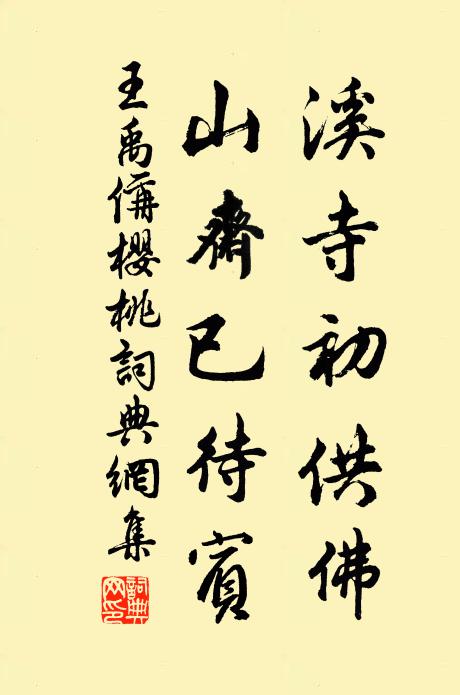 溪寺初供佛
山齋已待賓
王禹偁櫻桃詞典網集
詞典网印